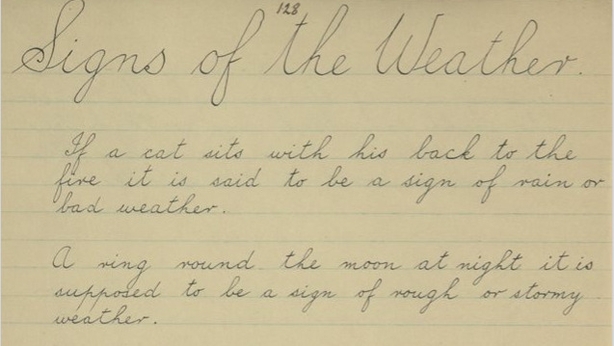 128
Signs of the Weather.
If a cat sits with his back to the
fire it is said to be a sign of rain or
bad weather.
A ring round the moon at night it is
supposed to be a sign of rough or stormy
weather.